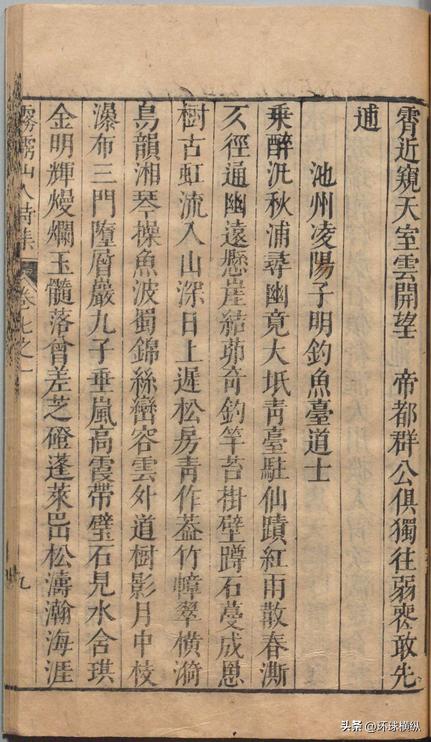 霄近窺天室雲開望　帝都群公俱獨往弱羽敢先
逋
池州凌陽子明釣魚臺道士
乘醉汎秋浦尋幽竟大坻靑臺駐仙蹟紅雨散春澌
久徑通幽遠懸崖結茆奇釣竿苔掛壁蹲石蔓成愚
樹古虹流入山深日上遲松房靑作葢竹幛翠橫漪
鳥韻湘琴操魚波蜀錦絲巒容雲外道樹影月中枝
瀑布三門墮層巖九子垂嵐高霞帶璧石見水含琪
金明輝熳爛玉髓落嶒差芝磴蓬萊岀松濤瀚海涯
山人詩集 卷七之一
九
头条 @环球横纵